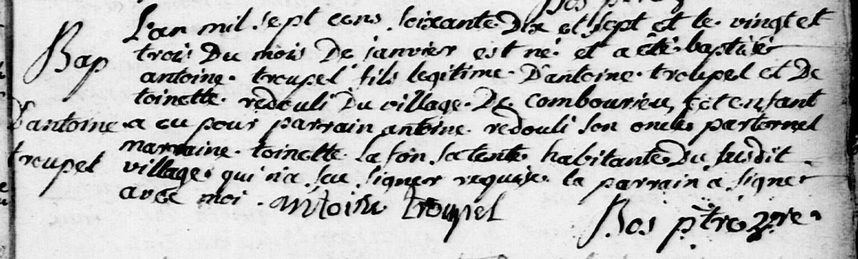 L'an mil sept cens soixante Dix et sept et le vingt et
Bap
trois Du mois De janvier est né et a été baptisé
antoine troupel fils legitime D'antoine troupel et De
toinette redouli Du village De combourieu, cet enfant
D'antoine
a eu pour parrain antoine redouli son oncle parternel
troupel
marraine toinette lafon sa tente habitante Du susdit
village qui n'a seu signer requise la parrain a signer
avec moi. antoine troupel
Bos ptre